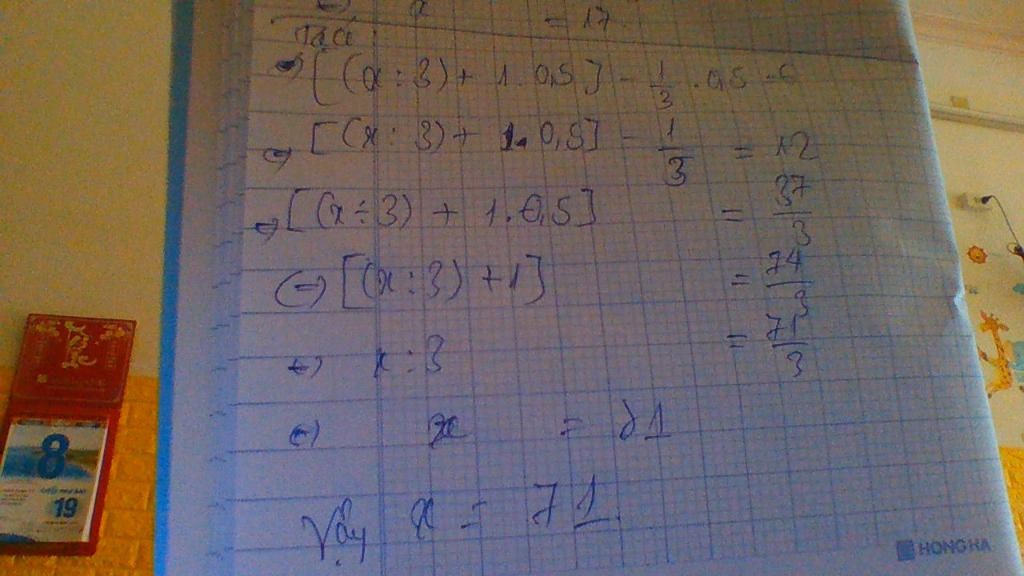 x = 17
Ta có:
[(x : 3) + 1 . 0,5] - 1/3 . 0,5 = 6
⇔ [(x : 3) + 1 . 0,5] - 1/3 = 12
⇔ [(x ÷ 3) + 1 . 0,5] = 37/3
⇔ [(x : 3) + 1] = 74/3
⇔ x : 3 = 71/3
⇔ x = 71
Vậy x = 71.
8
19
HONG HA